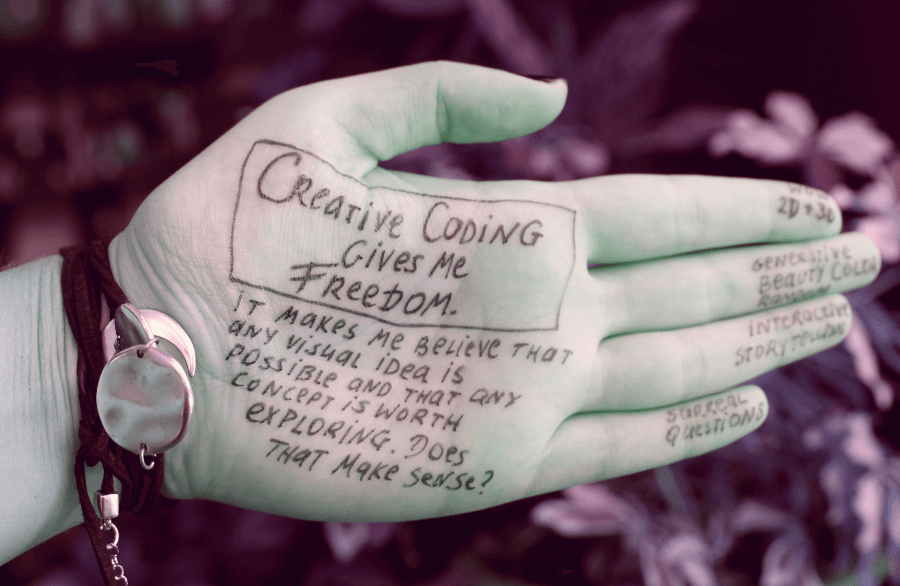 Creative Coding
Gives Me
Freedom.
It makes me believe that
any visual idea is
possible and that any
concept is worth
exploring. Does
that make sense?
2D + 3D
Generative
Beauty Color
Interactive
Storytelling
Surreal
Questions